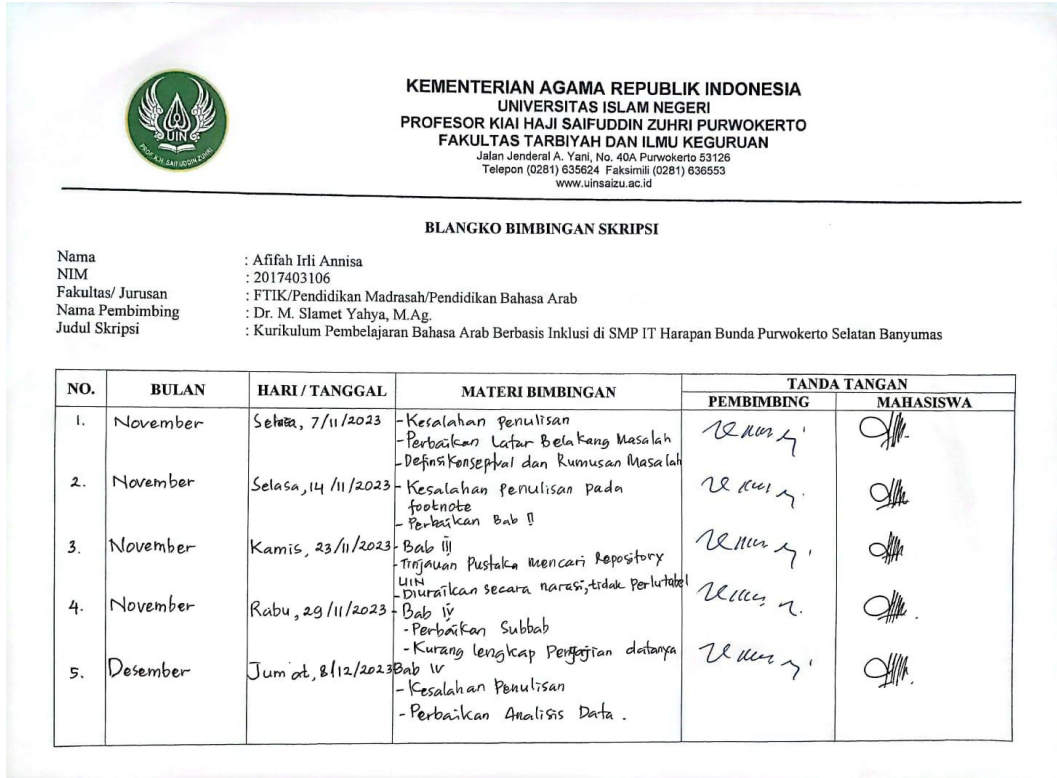 UIN
PROF. K.H. SAIFUDDIN ZUHRI
KEMENTERIAN AGAMA REPUBLIK INDONESIA
UNIVERSITAS ISLAM NEGERI
PROFESOR KIAI HAJI SAIFUDDIN ZUHRI PURWOKERTO
FAKULTAS TARBIYAH DAN ILMU KEGURUAN
Jalan Jenderal A. Yani, No. 40A Purwokerto 53126
Telepon (0281) 635624 Faksimili (0281) 636553
www.uinsaizu.ac.id
BLANGKO BIMBINGAN SKRIPSI
Nama : Afifah Irli Annisa
NIM : 2017403106
Fakultas/ Jurusan : FTIK/Pendidikan Madrasah/Pendidikan Bahasa Arab
Nama Pembimbing : Dr. M. Slamet Yahya, M.Ag.
Judul Skripsi : Kurikulum Pembelajaran Bahasa Arab Berbasis Inklusi di SMP IT Harapan Bunda Purwokerto Selatan Banyumas
NO. BULAN HARI / TANGGAL MATERI BIMBINGAN TANDA TANGAN
PEMBIMBING MAHASISWA
1. November Selasa, 7/11/2023 - Kesalahan Penulisan
- Perbaikan Latar Belakang Masalah
- Definsi Konseptual dan Rumusan Masalah
2. November Selasa, 14/11/2023 - Kesalahan Penulisan pada
footnote
- Perbaikan Bab II
3. November Kamis, 23/11/2023 - Bab III
- Tinjauan Pustaka mencari Repository
UIN
- Diuraikan secara narasi, tidak perlu tabel
4. November Rabu, 29/11/2023 - Bab IV
- Perbaikan Subbab
- Kurang lengkap Penyajian datanya
5. Desember Jum'at, 8/12/2023 Bab IV
- Kesalahan Penulisan
- Perbaikan Analisis Data.